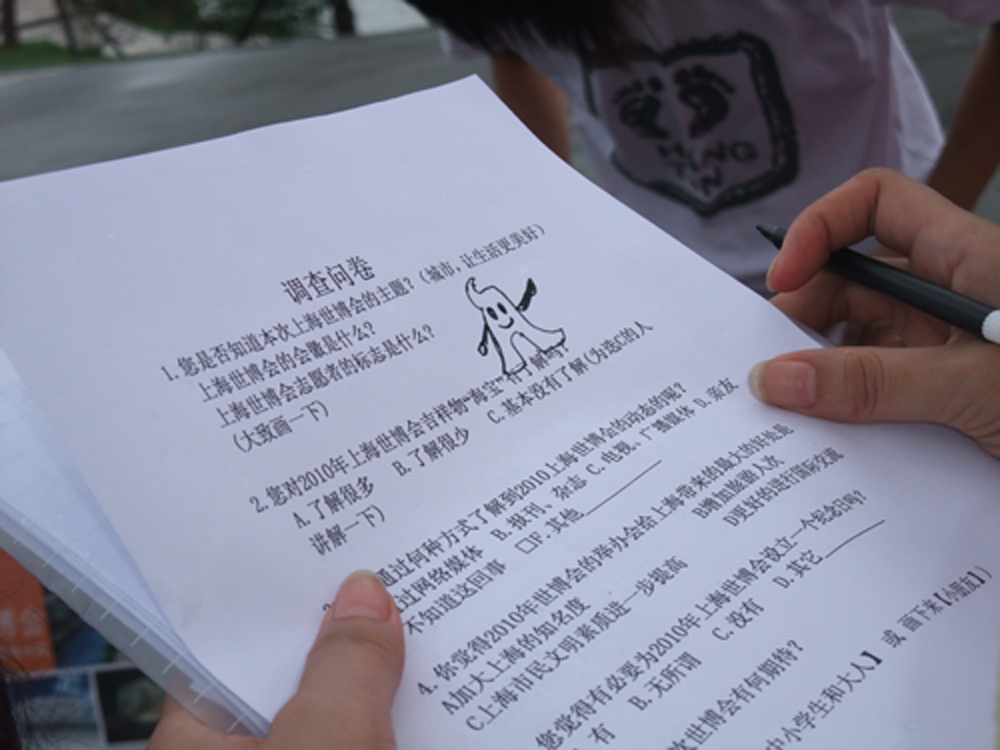 调查问卷
1. 您是否知道本次上海世博会的主题？（城市，让生活更美好）
上海世博会的会徽是什么？
上海世博会志愿者的标志是什么？
（大致画一下）
2. 您对2010年上海世博会吉祥物“海宝”有了解吗？
A. 了解很多 B. 了解很少 C. 基本没有了解（为选C的人
讲解一下）
通过何种方式了解到2010上海世博会的动态的呢？
过网络媒体 B. 报刊、杂志 C. 电视、广播媒体 D. 亲友
不知道这回事 □F. 其他
4. 你觉得2010年世博会的举办会给上海带来的最大的好处是
A加大上海的知名度 B增加旅游人次
C上海市民文明素质进一步提高 D更好的进行国际交流
您觉得有必要为2010年上海世博会设立一个纪念日吗？
有 B. 无所谓 C. 没有 D. 其它
世博会有何期待？
中小学生和大人】 或 画下来【小朋友】）